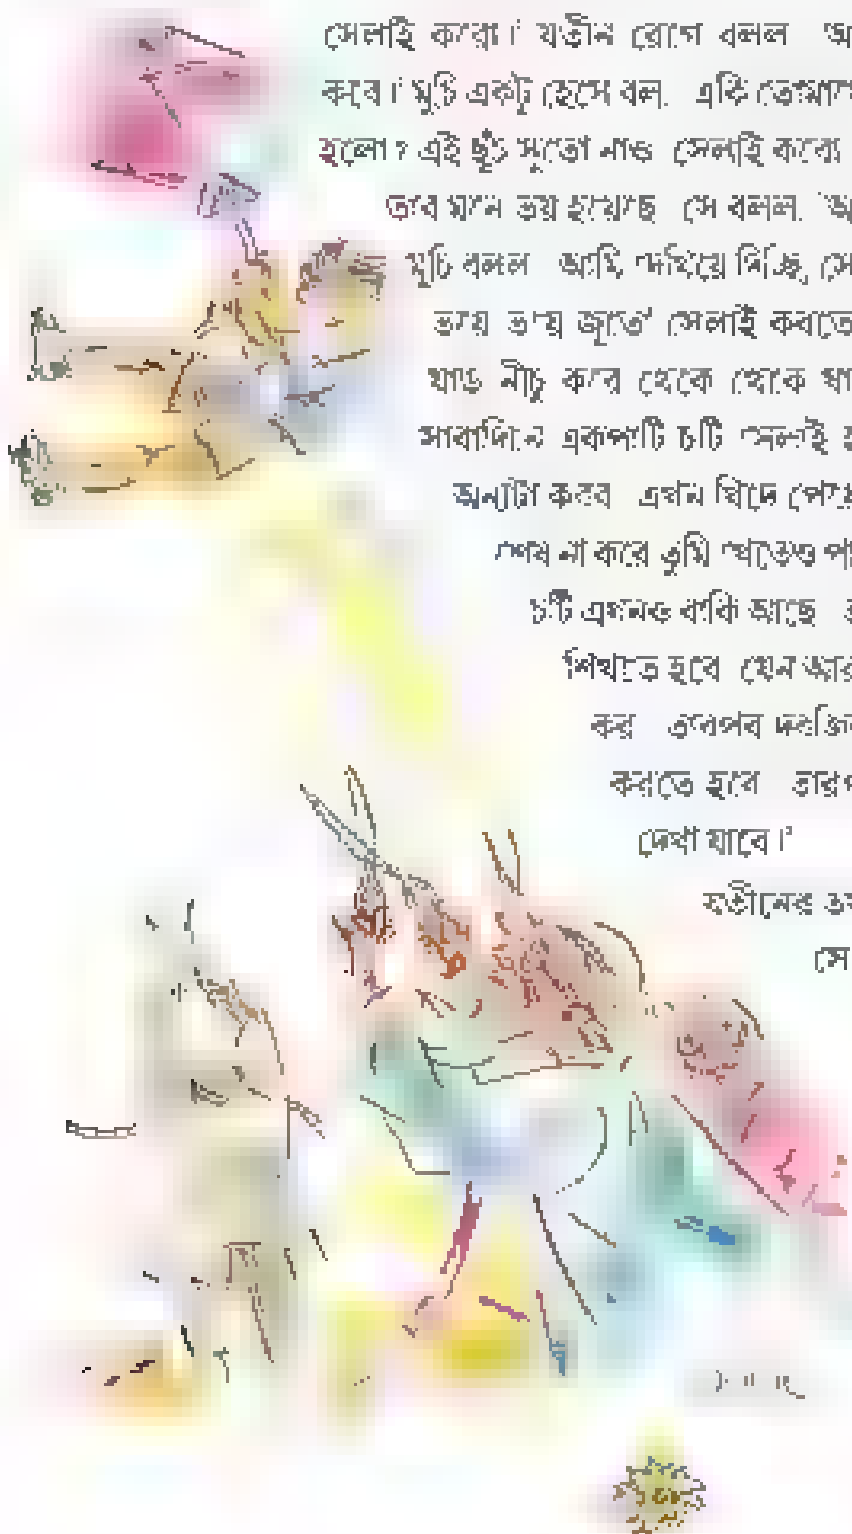 সেলাই করো।' যতীন রেগে বলল 'আ
করব।' মুচি একটু হেসে বলল, একি তোমা
হলো? এই ছুঁচ সুতো নাও সেলাই করো
তার মনে ভয় হয়েছে সে বলল, 'আ
মুচি বলল আমি দেখিয়ে দিচ্ছি, সে
ভয়ে ভয়ে জুতো সেলাই করতে
ঘাড় নীচু করে থেকে থেকে ঘা
সারাদিনে একপাটি চটি সেলাই হ
অন্যটা করব এখন খিদে পেয়ে
শেষ না করে তুমি খেতেও পা
চটি এখনও বাকি আছে
শিখতে হবে যেন আর
কর তারপর দরজির
করতে হবে তারপ
দেখা যাবে।'
যতীনের তখ
সে